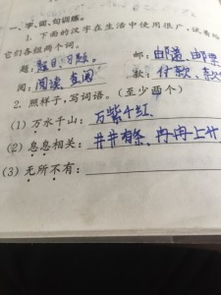 一、字、词、句训练。
1. 下面的汉字在生活中使用很广，试着给
它们各组两个词。
题：题目 习题 邮：邮递 邮票
阅：阅读 查阅 款：付款
2. 照样子，写词语。（至少两个）
(1) 万水千山：万紫千红
(2) 息息相关：井井有条 冉冉上升
(3) 无所不有：